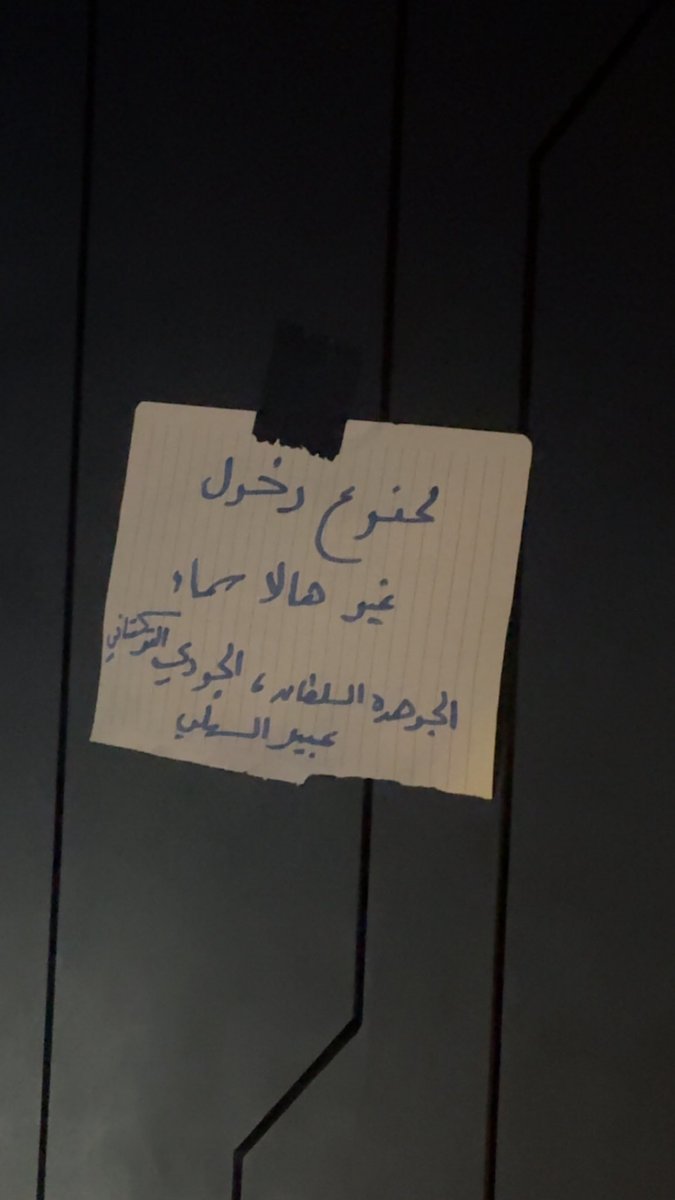 ممنوع دخول
غير هالاسماء
الجوهره السلطان، الجودي التركستاني
عبير السهلي